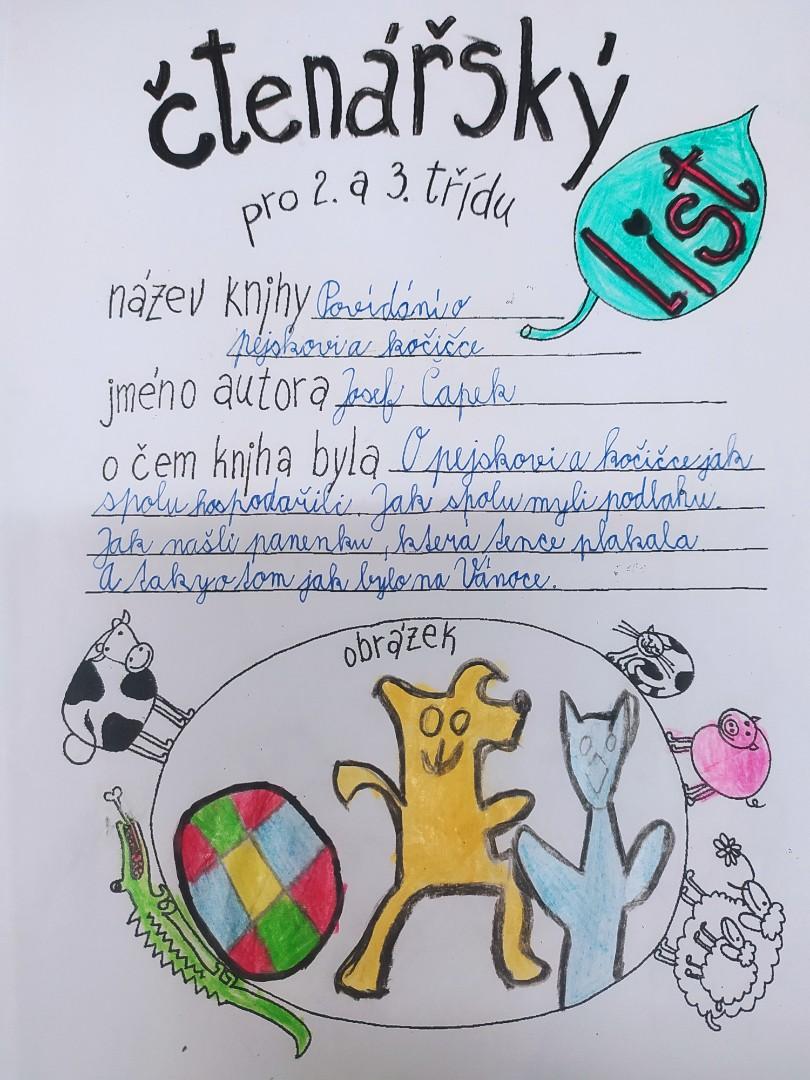 čtenářský
list
pro 2. a 3. třídu
název knihy Povídání o
pejskovi a kočičce
jméno autora Josef Čapek
o čem kniha byla O pejskovi a kočičce jak
spolu hospodařili. Jak spolu myli podlahu.
Jak našli panenku, ktera tence plakala
A taky o tom jak bylo na Vánoce.
obrázek